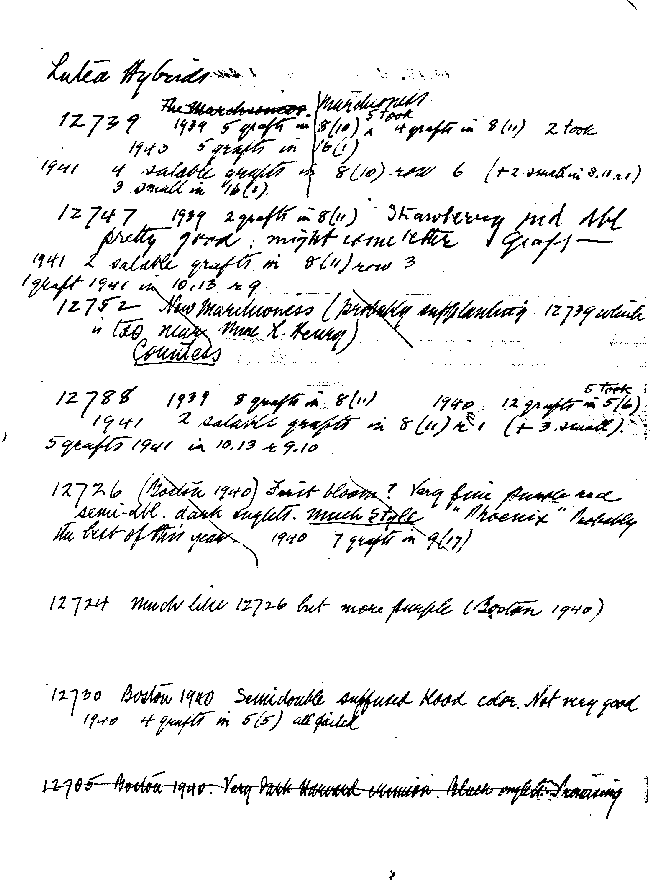 Lutea Hybrids
The Marchioness. Marchioness
12739 1939 5 grafts in 8(10) 5 took 4 grafts in 8(11) 2 took
1940 5 grafts in 16(1)
1941 4 salable grafts in 8(10) row 6 (+2 small in 8.11 r1)
3 small in 16(1)
12747 1939 2 grafts in 8(11) Strawberry red dbl
pretty good, might come better 1 graft
1941 2 salable grafts in 8(11) row 3
1 graft 1941 in 10.13 r 9
12752 New Marchioness (probably supplanting 12739 which
is too near Mme L. Henry)
Countess
12788 1939 8 grafts in 8(11) 1940 12 grafts in 5(6) 5 took
1941 2 salable grafts in 8(11) r 1 (+ 3 small).
5 grafts 1941 in 10.13 r 9.10
12726 (Boston 1940) First bloom? Very fine purple red
semi-dbl. dark onglets. Much style "Phoenix" Probably
the best of this year. 1940 7 grafts in 9(17)
12724 Much like 12726 but more purple (Boston 1940)
12730 Boston 1940 Semidouble suffused blood color. Not very good
1940 4 grafts in 5(5) all failed
12705 Boston 1940. Very Dark Harvard crimson. Black onglets. Promising